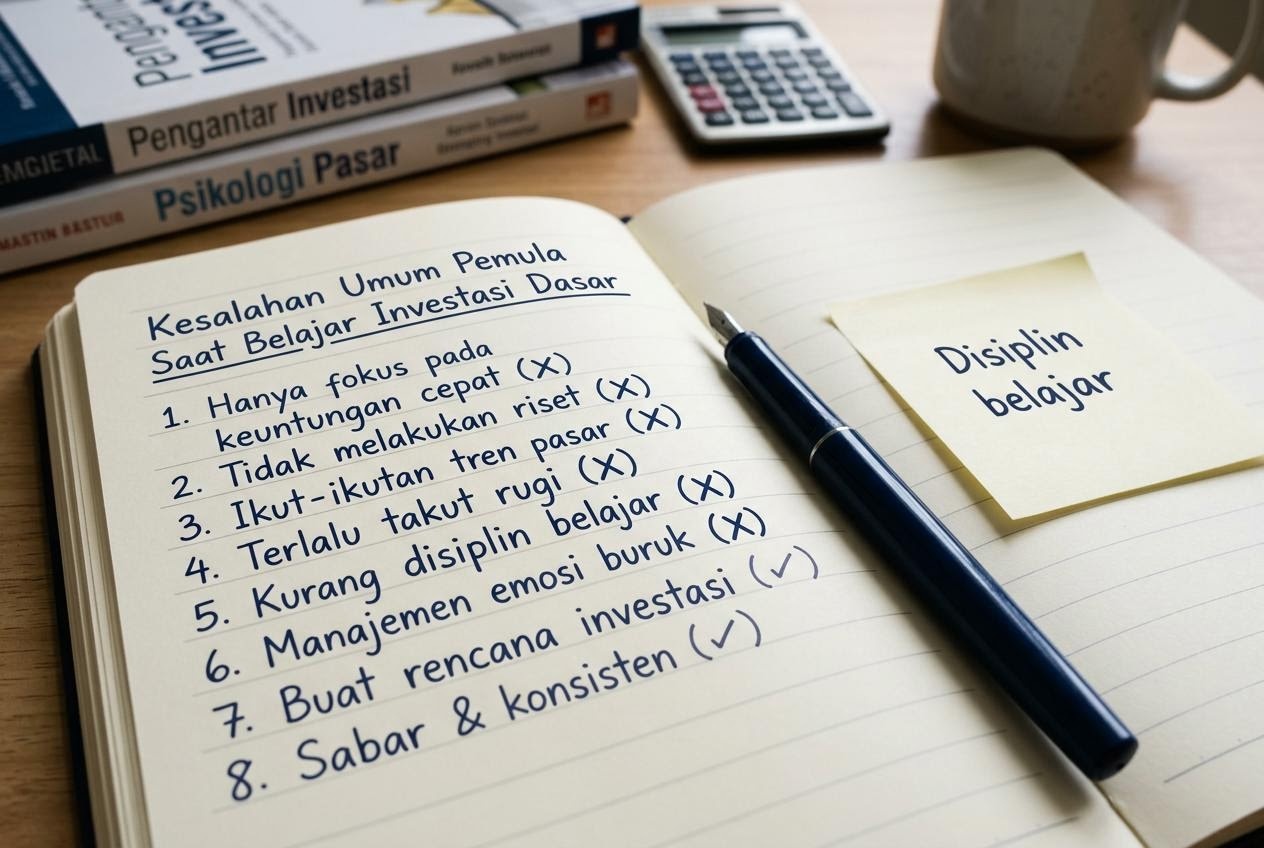 Pengantar
Invest
EMGIETAL
Pengantar Investasi
MASTIN BASTUR
Psikologi Pasar
Kesalahan Umum Pemula
Saat Belajar Investasi Dasar
1. Hanya fokus pada
keuntungan cepat (X)
2. Tidak melakukan riset (X)
3. Ikut-ikutan tren pasar (X)
4. Terlalu takut rugi (X)
5. Kurang disiplin belajar (X)
6. Manajemen emosi buruk (X)
7. Buat rencana investasi (✓)
8. Sabar & konsisten (✓)
Disiplin
belajar